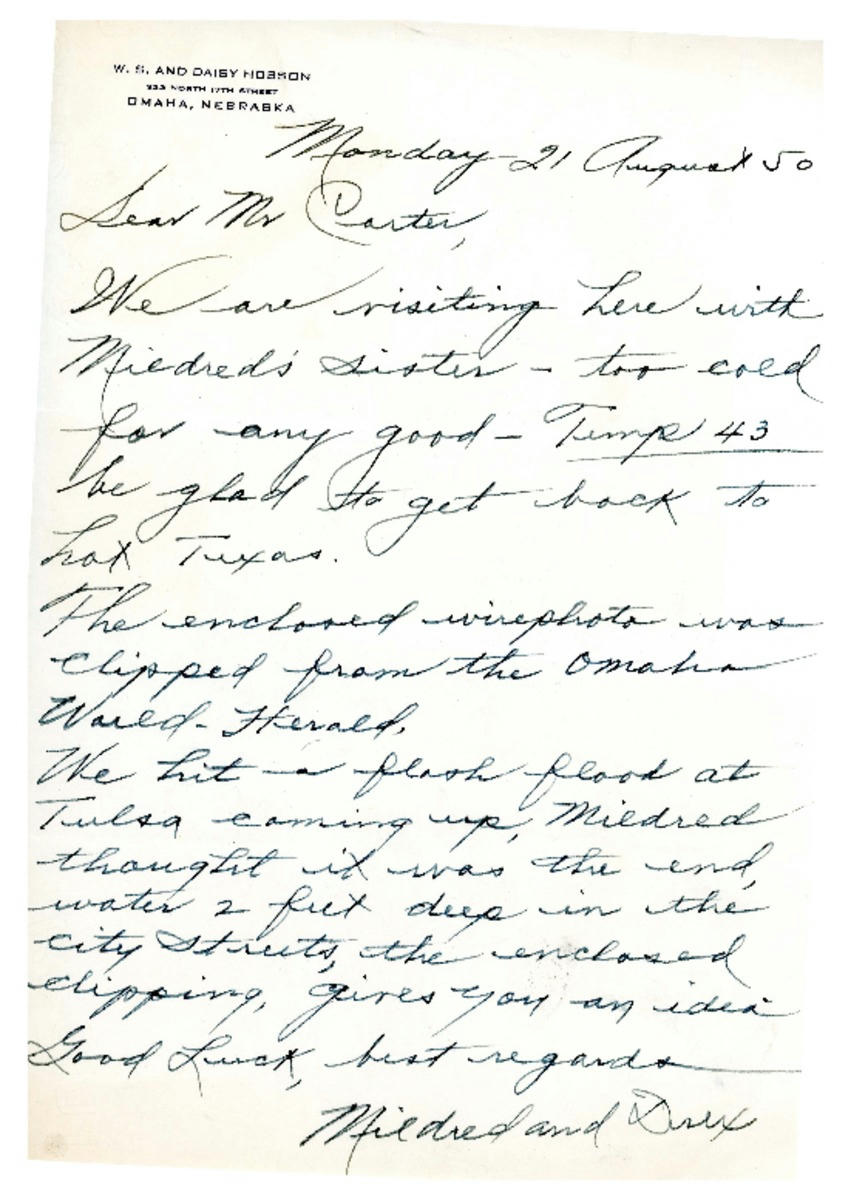 W. S. AND DAISY HOBSON
NORTH 17TH STREET
OMAHA, NEBRASKA
Monday - 21 August 50
Dear Mr Carter,
We are visiting here with
Mildred's sister - too cold
for any good - Temp 43
be glad to get back to
hot Texas.
The enclosed wirephoto was
clipped from the Omaha
World-Herald.
We hit a flash flood at
Tulsa coming up, Mildred
thought it was the end,
water 2 feet deep in the
city streets, the enclosed
clipping, gives you an idea
Good Luck, best regards
Mildred and